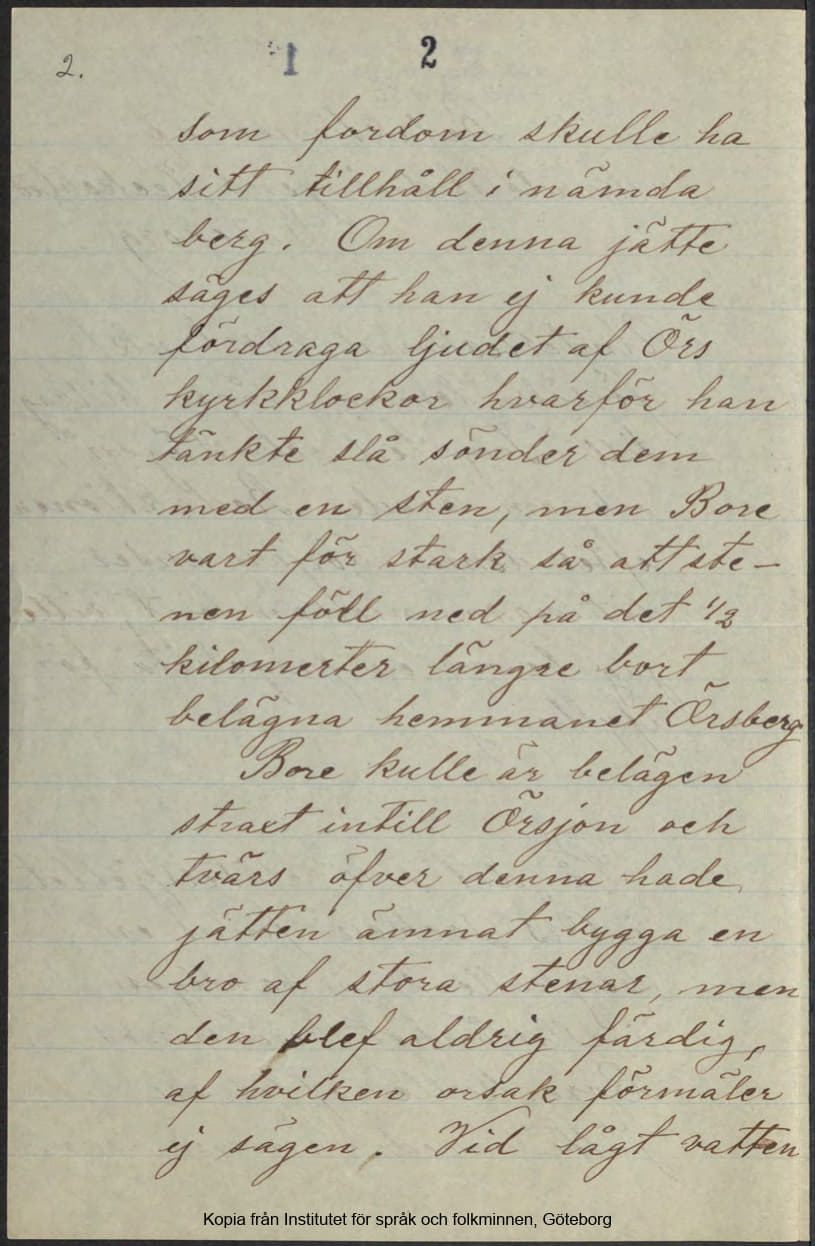 2. 1 2
som fordom skulle ha
sitt tillhåll i nämda
berg. Om denna jätte
säges att han ej kunde
fördraga ljudet af Örs
kyrkklockor hvarför han
tänkte slå sönder dem
med en sten, men Bore
vart för stark så att ste-
nen föll ned på det 1/2
kilomerter längre bort
belägna hemmanet Örsberg
Bore kulle är belägen
straxt intill Örsjon och
tvärs öfver denna hade
jätten ämnat bygga en
bro af stora stenar, men
den blef aldrig färdig,
af hvilken orsak förmäler
ej sägen. Vid lågt vatten
Kopia från Institutet för språk och folkminnen, Göteborg